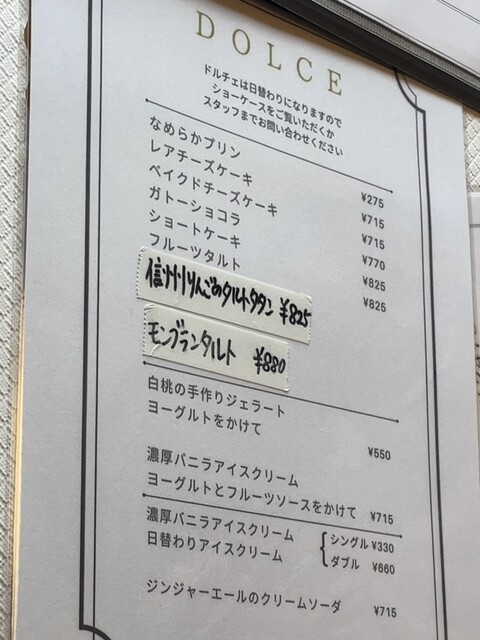 DOLCE
ドルチェは日替わりになりますので
ショーケースをご覧いただくか
スタッフまでお問い合わせください
なめらかプリン ¥275
レアチーズケーキ ¥715
ベイクドチーズケーキ ¥715
ガトーショコラ ¥770
ショートケーキ ¥825
フルーツタルト ¥825
信州りんごのタルトタタン ¥825
モンブランタルト ¥880
白桃の手作りジェラート
ヨーグルトをかけて ¥550
濃厚バニラアイスクリーム
ヨーグルトとフルーツソースをかけて ¥715
濃厚バニラアイスクリーム シングル ¥330
日替わりアイスクリーム ダブル ¥660
ジンジャーエールのクリームソーダ ¥715